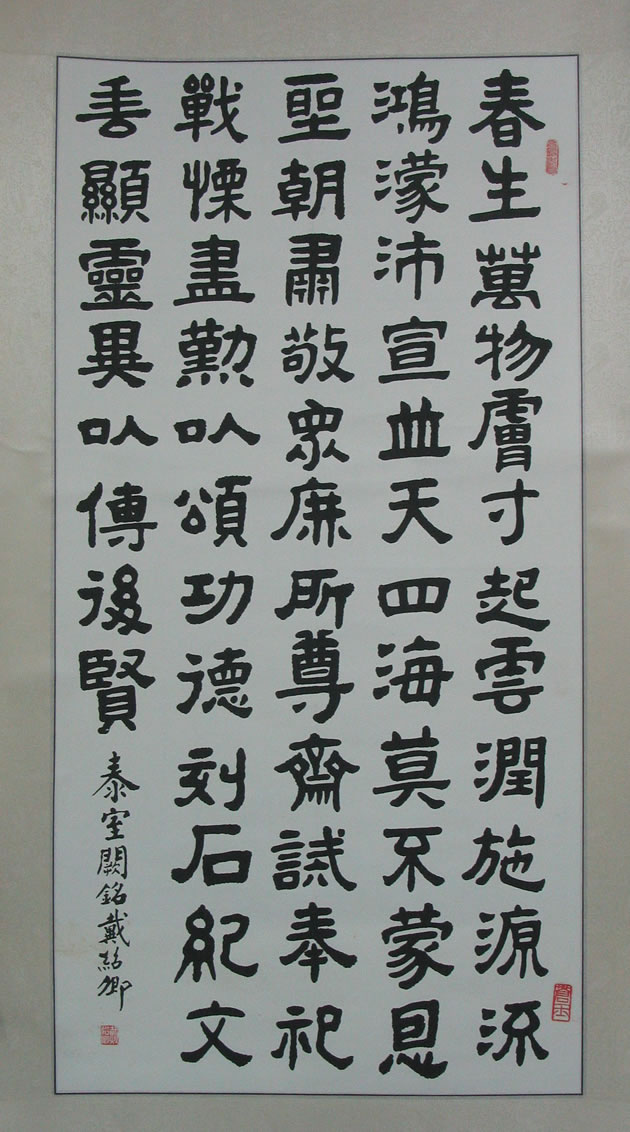 春生萬物膚寸起雲潤施源流
鴻濛沛宣並天四海莫不蒙恩
聖朝肅敬眾庶所尊齋誠奉祀
戰慄盡勤以頌功德刻石紀文
垂顯靈異以傳後賢
泰室闕銘戴紹卿